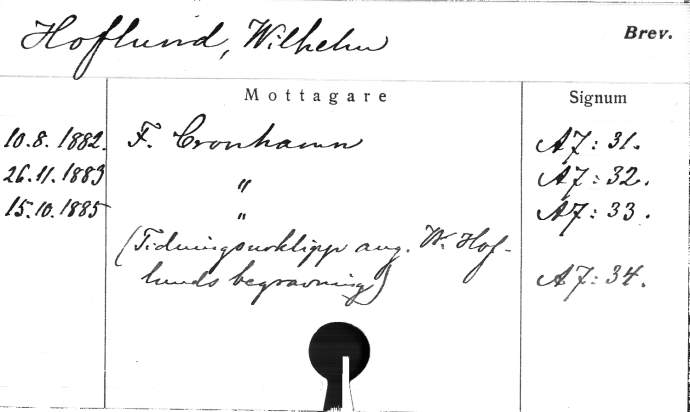 Hoflund, Wilhelm Brev.
Mottagare Signum
10.8.1882. F. Cronhamn A7:31.
26.11.1883 " A7:32.
15.10.1885 " A7:33.
(Tidningsurklipp ang. W. Hof-
lunds begravning) A7:34.